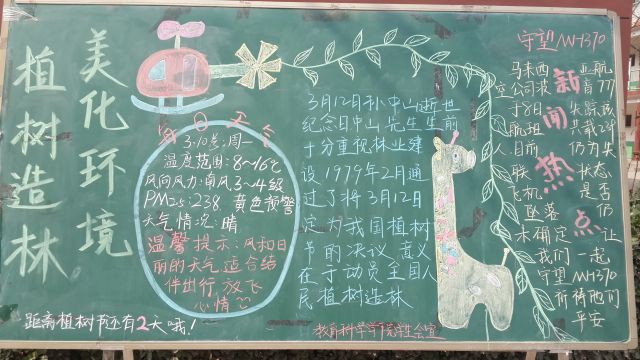 植树造林
美化环境
3.10号:周一
温度范围:8~16℃
风向风力:南风3~4级
PM2.5:238.黄色预警
天气情况:晴
温馨提示:风和日
丽的天气适合结
伴出行,放飞
心情
距离植树节还有2天哦!
3月12日孙中山逝世
纪念日中山先生生前
十分重视林业建
设1979年2月通
过了将3月12日
定为我国植树
节的决议,意义
在于动员全国人
民植树造林
教育科学学院学生会宣
守望MH370
新闻热点
马来西亚航
空公司波音777
于8日失踪该
航班共载239
目前仍为失
联状态
飞机是否
坠落仍
未确定让
我们一起
守望MH370
祈祷他们
平安